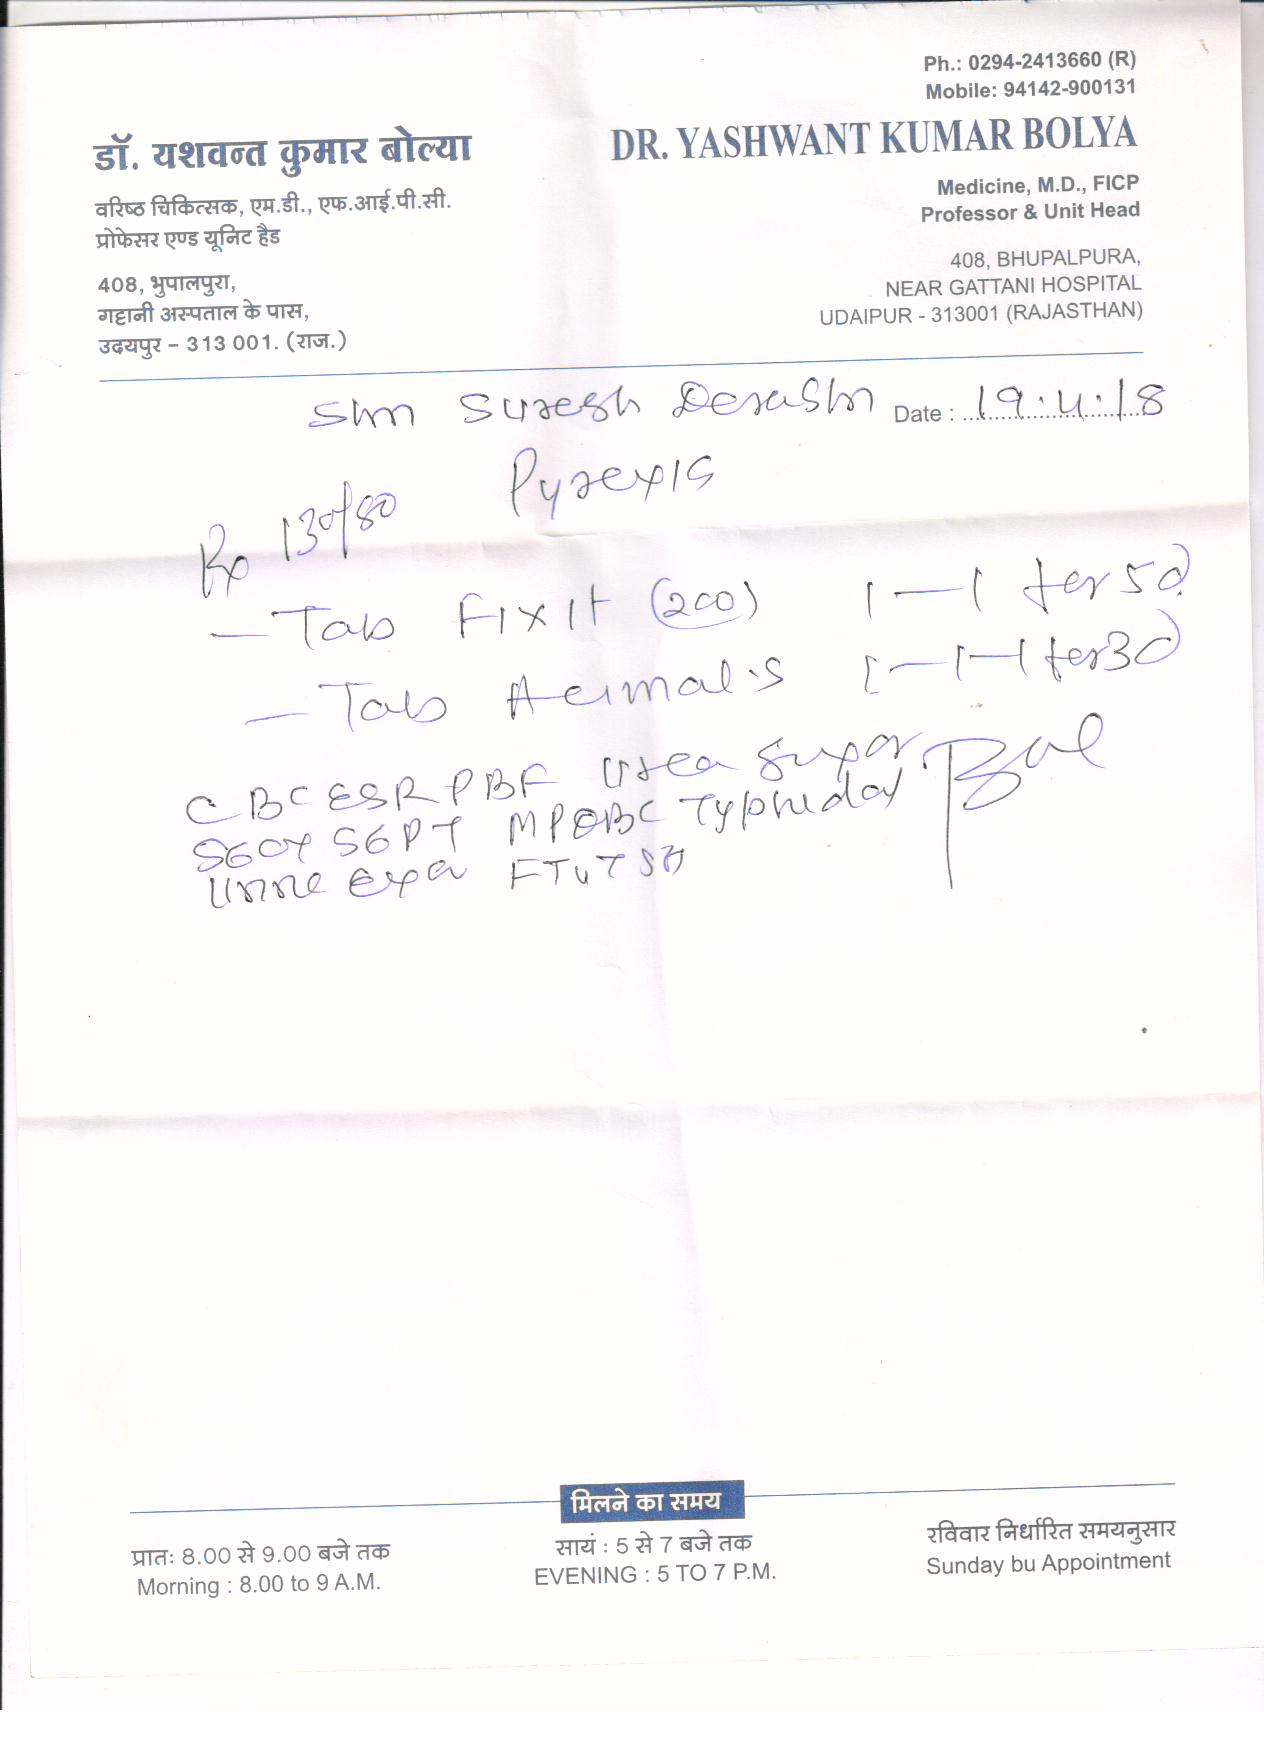 Ph.: 0294-2413660 (R)
Mobile: 94142-900131
डॉ. यशवन्त कुमार बोल्या
DR. YASHWANT KUMAR BOLYA
वरिष्ठ चिकित्सक, एम.डी., एफ.आई.पी.सी.
प्रोफेसर एण्ड यूनिट हैड
Medicine, M.D., FICP
Professor & Unit Head
408, भुपालपुरा,
गट्टानी अस्पताल के पास,
उदयपुर – 313 001. (राज.)
408, BHUPALPURA,
NEAR GATTANI HOSPITAL
UDAIPUR - 313001 (RAJASTHAN)
Suresh Date : 19.4.18
Pyrexia
Rp 130/80
– Tab Fixit (200) 1 – 1 for 5d
– Tab 1 – 1 – 1 for 3d
CBC ESR PBF Urea Sugar
SGOT SGPT Typhidot
Urine TSH
मिलने का समय
प्रातः 8.00 से 9.00 बजे तक
Morning : 8.00 to 9 A.M.
सायं : 5 से 7 बजे तक
EVENING : 5 TO 7 P.M.
रविवार निर्धारित समयनुसार
Sunday bu Appointment